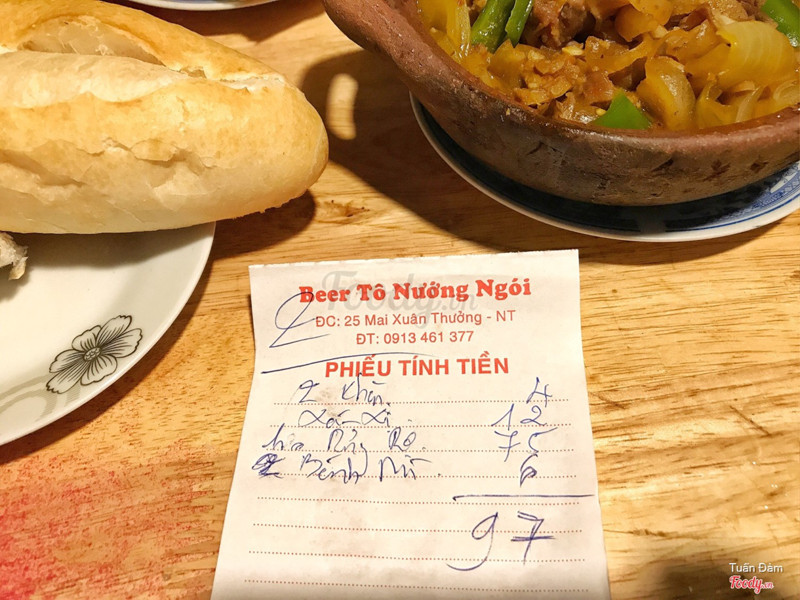 Foody.vn
Beer Tô Nướng Ngói
2
ĐC: 25 Mai Xuân Thưởng - NT
ĐT: 0913 461 377
PHIẾU TÍNH TIỀN
2 Khăn 4
12
75
2 Bánh Mì 6
97
Tuấn Đàm
Foody.vn